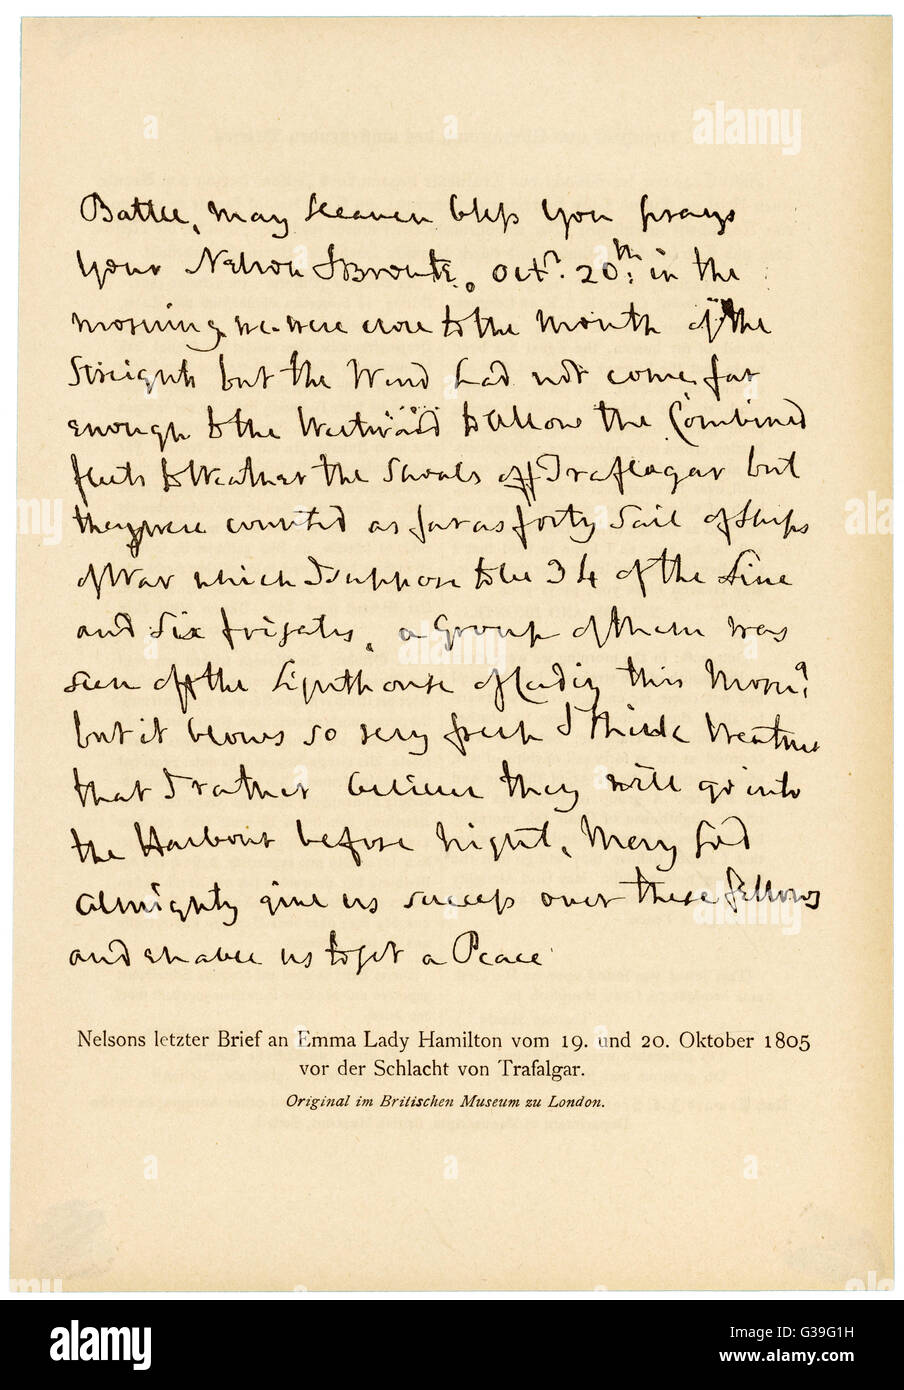 Battle, may Heaven bless you prays
your Nelson & Bronte, Octr. 20th: in the
morning we were close to the mouth of the
Streights but the Wind had not come far
enough to the Westward to allow the Combined
fleets to Weather the Shoals off Traflagar but
they were counted as far as forty Sail of Ships
of War which I suppose to be 34 of the Line
and Six frigates, a Group of them was
seen off the Lighthouse of Cadiz this Morng
but it blows so very fresh I think Weather
that I rather believe they will go into
the Harbour before night, May God
Almighty give us success over these fellows
and enable us to get a Peace
Nelsons letzter Brief an Emma Lady Hamilton vom 19. und 20. Oktober 1805
vor der Schlacht von Trafalgar.
Original im Britischen Museum zu London.
alamy
Image ID: G39G1H
www.alamy.com